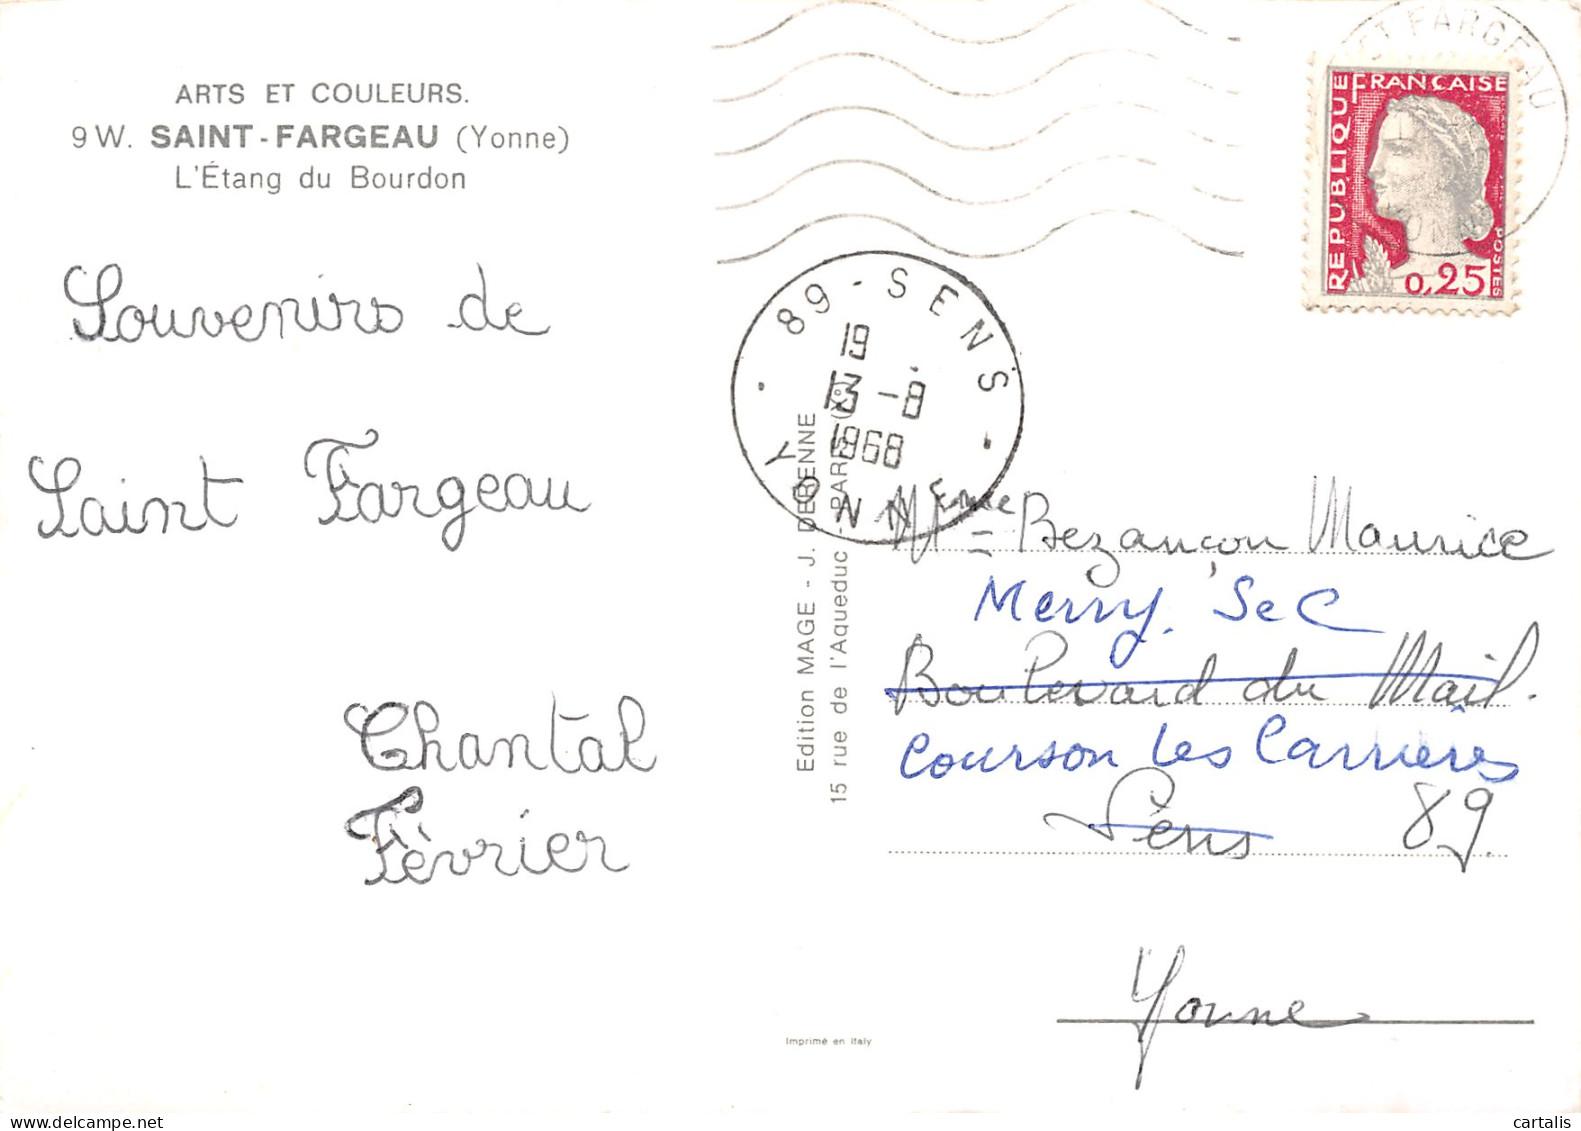 ARTS ET COULEURS.
9 W. SAINT-FARGEAU (Yonne)
L'Étang du Bourdon
Souvenirs de
Saint Fargeau
Chantal
Février
ST FARGEAU
YONNE
REPUBLIQUE FRANÇAISE
POSTES
0,25
89 - SENS
19
13 - 8
1968
YONNE
Edition MAGE - J. DERENNE
15 rue de l'Aqueduc - PARIS
Bezançon Maurice
Merry. Sec
Boulevard du Mail.
Courson les Carrières
Sens 89.
Yonne
Imprimé en Italy
cartalis
delcampe.net